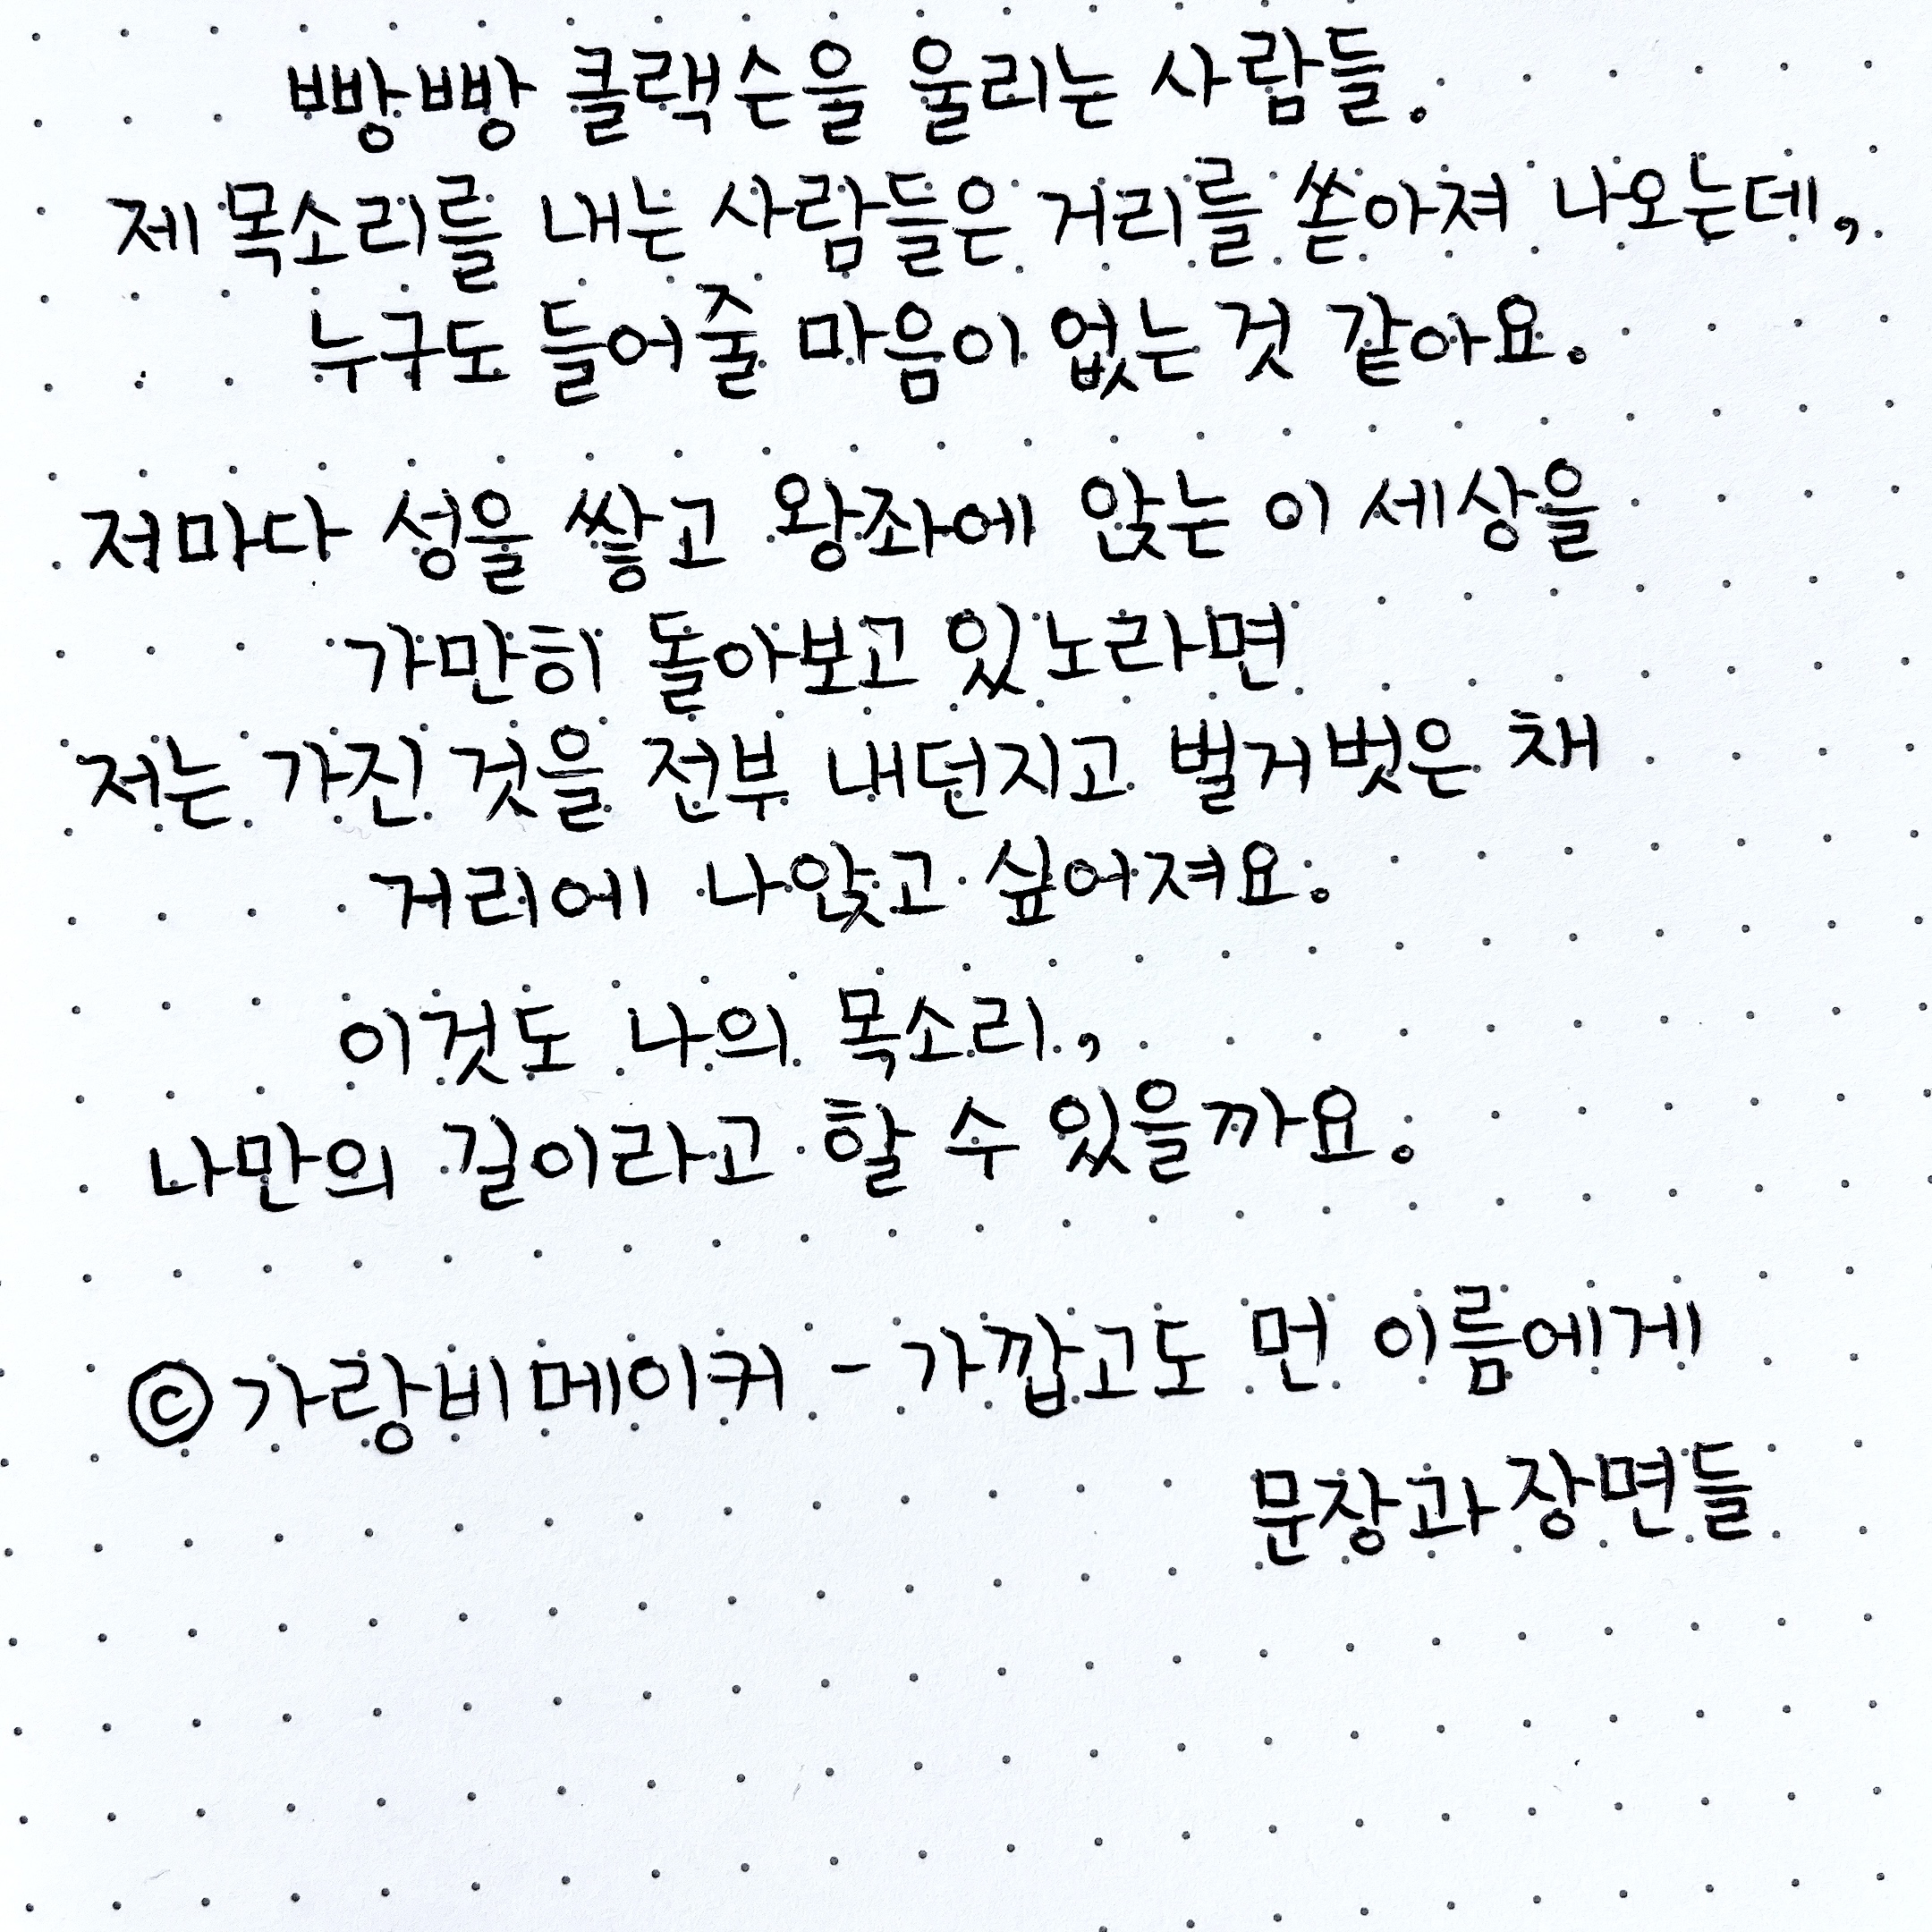 빵빵 클랙슨을 울리는 사람들.
제 목소리를 내는 사람들은 거리를 쏟아져 나오는데,
누구도 들어줄 마음이 없는 것 같아요.
저마다 성을 쌓고 왕좌에 앉는 이 세상을
가만히 돌아보고 있노라면
저는 가진 것을 전부 내던지고 벌거벗은 채
거리에 나앉고 싶어져요.
이것도 나의 목소리,
나만의 길이라고 할 수 있을까요.
©가랑비메이커 - 가깝고도 먼 이름에게
문장과장면들